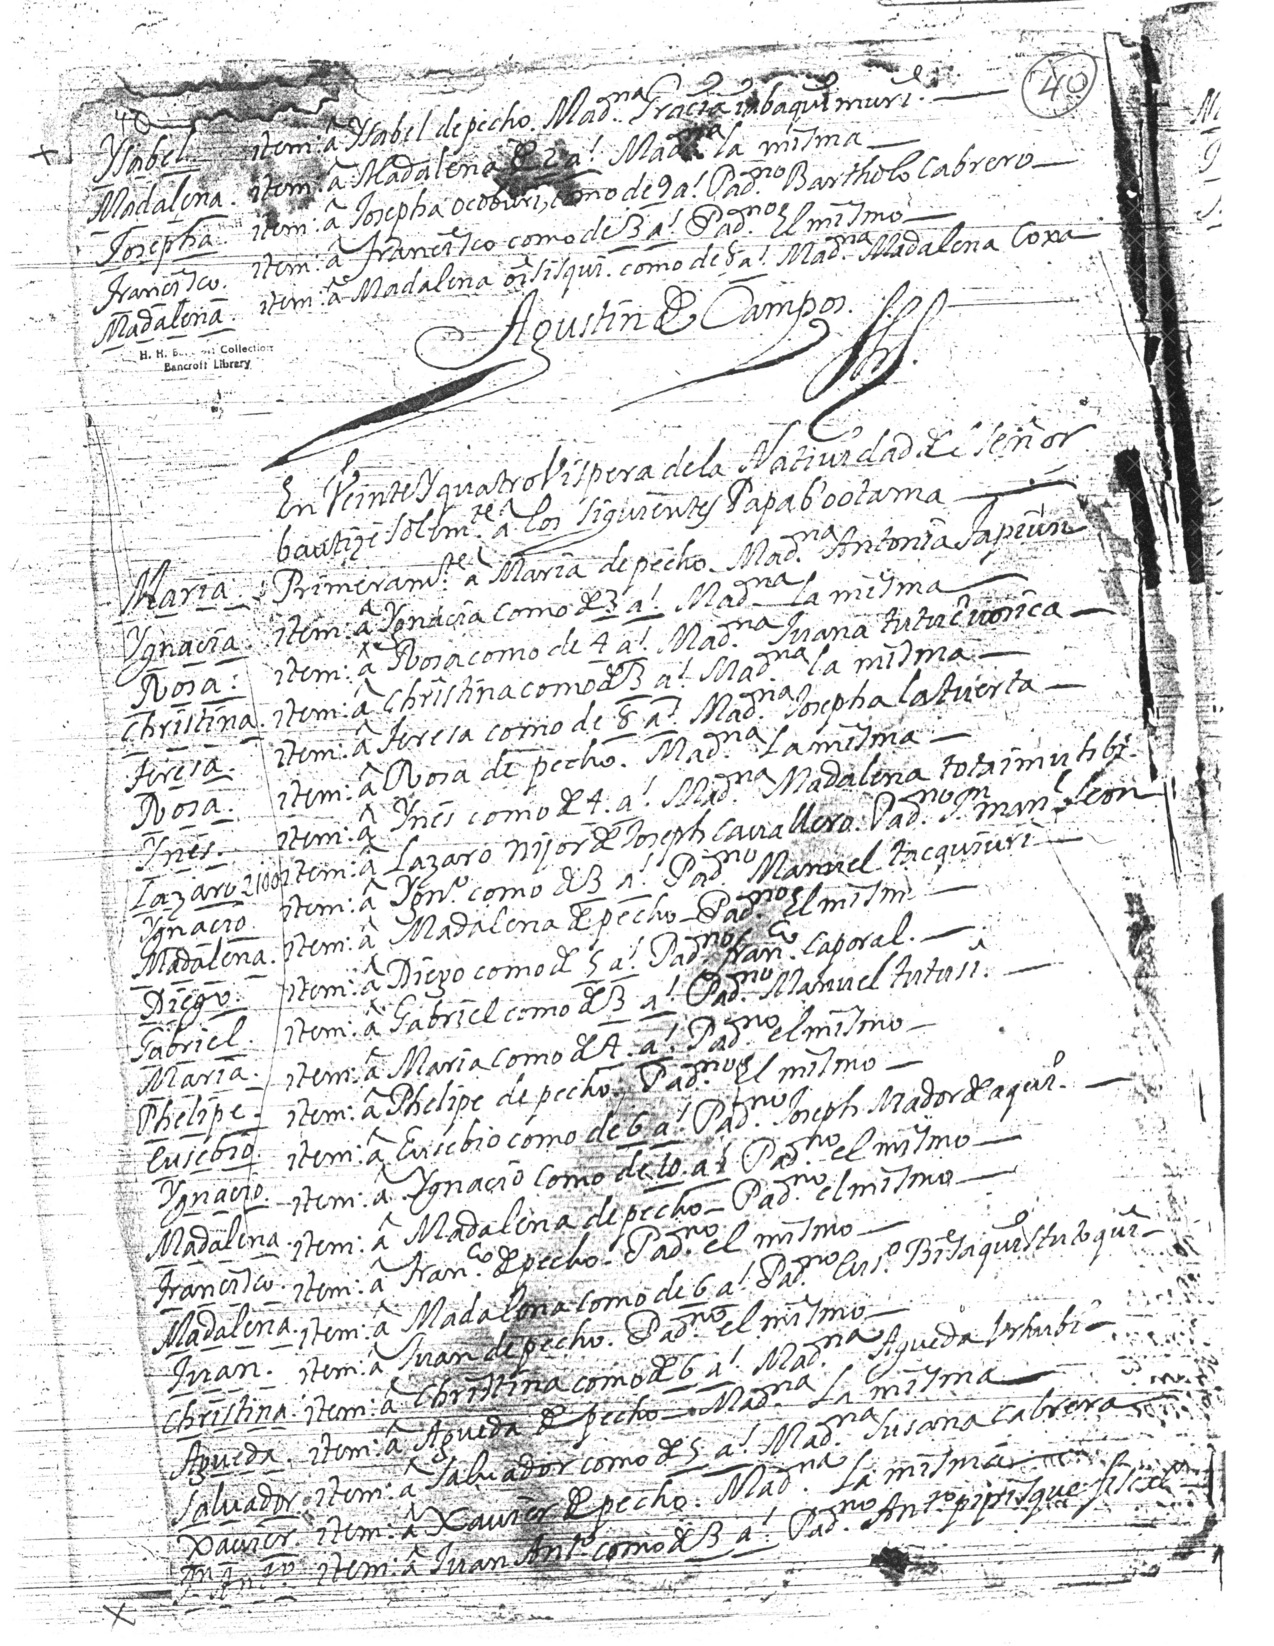 40
40
Ysabel. item: â Ysabel de pecho. Madna. Gracia ubaquimuri.
Madalena. item: â Madalena de 2 a! Madna. la misma
Josepha. item: â Josepha ocoburi, como de 9 a! Padno. Bartholo Cabrero
Francisco. item: â Francisco como de 3 a! Padno. El mismo
Madalena. item: â Madalena como de a! Madna. Madalena Coxa
Agustin de Campos.
H. H. Collection
Bancroft Library
En Veinte Y quatro Vispera de la Natiuidad de el Señor
bautizê solemte. â los siguientes Papabootama
Maria. Primeramte. â Maria de pecho. Madna. Antonia
Ygnacia. item: â Ygnacia como de 3 a! Madna. la misma
Rosa: item: â Rosa como de 4 a! Madna. Juana
Christina. item: â Christina como de 3 a! Madna. la misma
Teresa. item: â Teresa como de 8 a! Madna. Josepha la tuerta
Rosa. item: â Rosa de pecho. Madna. La misma
Ines. item: â Ines como de 4. a! Madna. Madalena
Lazaro item: â Lazaro hijo de Joseph cavallero. Padno. Manl. Leon
Ygnacio item: â Ygno. como de 3 a! Padno. Manuel
Madalena. item: â Madalena de pecho Padno. El mism
Diego. item: â Diego como de 5 a! Padno. Franco. Caporal.
Gabriel. item: â Gabriel como de 3 a! Padno. Manuel tutusi.
Maria. item: â Maria como de 4. a! Padno. el mismo
Phelipe. item: â Phelipe de pecho. Padno. El mismo
Eusebio. item: â Eusebio como de 6 a! Padno. Joseph Mador de aqui.
Ygnacio. item: â Ygnacio como de 10 a! Padno. el mismo
Madalena. item: â Madalena de pecho Padno. el mismo
Francisco. item: â Franco. de pecho. Padno. el mismo
Madalena. item: â Madalena como de 6 a! Padno.
Juan. item: â Juan de pecho. Padno. el mismo
Christina. item: â Christina como de 6 a! Madna. Agueda
Agueda. item: â Agueda de pecho Madna. La misma
Salvador. item: â Salvador como de 5 a! Madna. Susana Cabrera
Xavier. item: â Xavier de pecho. Madna. La misma
Jn. Anto. item: â Juan Anto. como de 3 a! Padno. Anto. pipisque fiscal